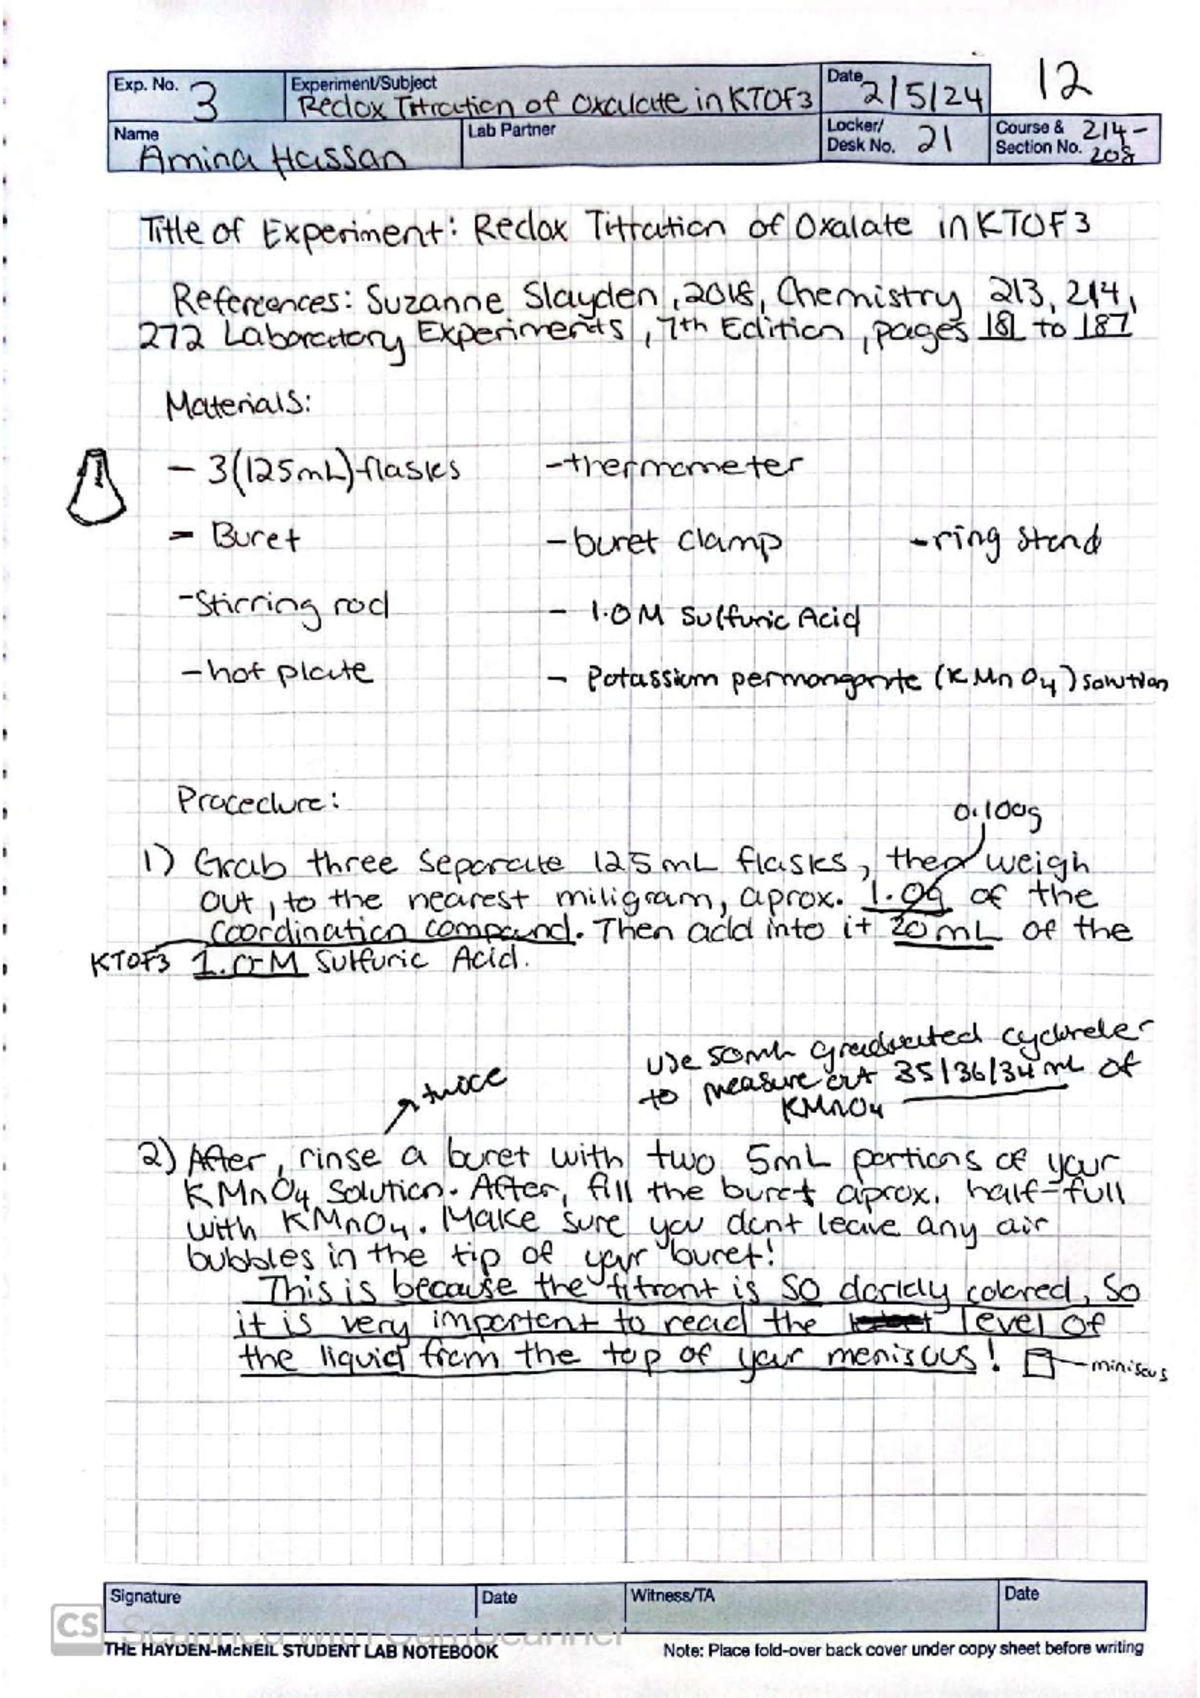 Exp. No. 3
Experiment/Subject Redox Titration of Oxalate in KTOF3
Date 2/5/24
12
Name Amina Hassan
Lab Partner
Locker/ Desk No. 21
Course & Section No. 214-208
Title of Experiment: Redox Titration of Oxalate in KTOF3
References: Suzanne Slayden, 2018, Chemistry 213, 214,
272 Laboratory Experiments, 7th Edition, pages 181 to 187
Materials:
- 3(125mL) flasks -thermometer
- Buret -buret clamp -ring stand
-Stirring rod - 1.0M Sulfuric Acid
-hot plate - Potassium permanganate (KMnO4) solution
Procedure:
0.100g
1) Grab three separate 125mL flasks, then weigh
out, to the nearest miligram, aprox. 1.0g of the
coordination compound. Then add into it 20mL of the
KTOF3 1.0M Sulfuric Acid.
use 50mL graduated
to measure out 35/36/34 mL of
KMnO4
twice
2) After, rinse a buret with two 5mL portions of your
KMnO4 Solution. After, fill the buret aprox. half-full
with KMnO4. Make sure you dont leave any air
bubbles in the tip of your buret!
This is because the titrant is so darkly colored, so
it is very important to read the level of
the liquid from the top of your meniscus!
miniscus
Signature Date Witness/TA Date
CS Scanned with CamScanner
THE HAYDEN-McNEIL STUDENT LAB NOTEBOOK Note: Place fold-over back cover under copy sheet before writing